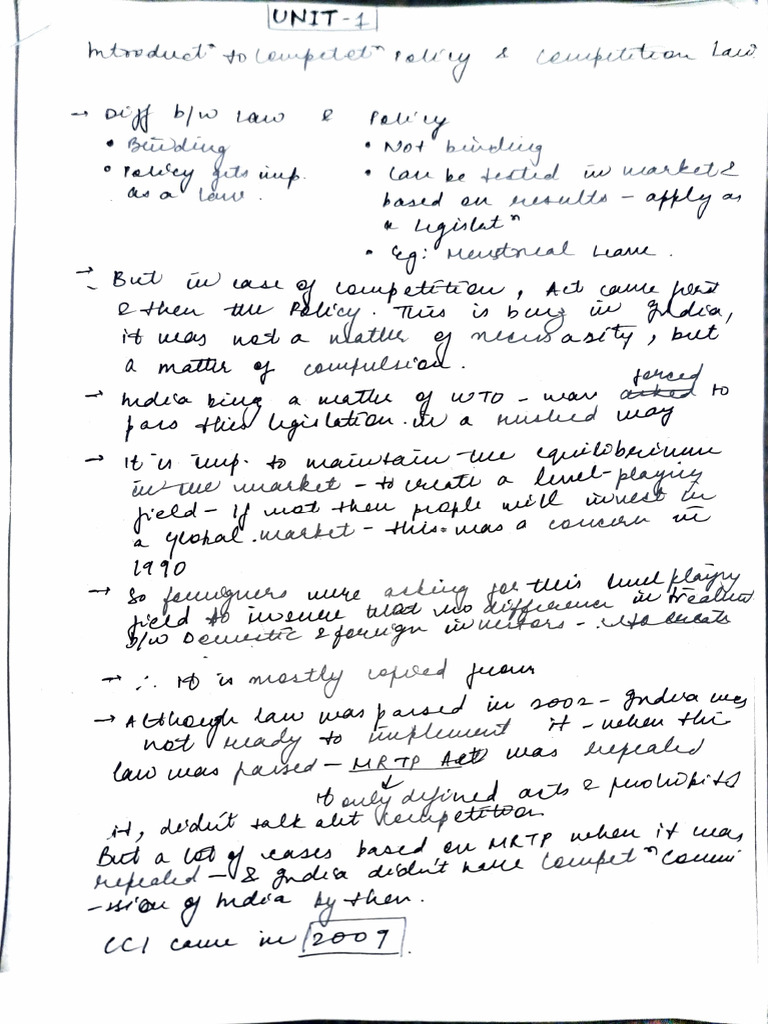 UNIT-1
Introductⁿ to Competetⁿ Policy & Competition Law
→ Diff b/w Law & Policy
• Binding • Not binding
• Policy gets imp. • Can be tested in market &
as a law. based on results - apply as
a legislatⁿ
• Eg: Menstrual Leave.
→ But in case of competition, Act came first
& then the Policy. This is bcuz in India,
it was not a matter of necessity, but
a matter of compulsion.
forced
→ India being a matter of WTO - was asked to
pass this legislation in a rushed way
→ It is imp. to maintain the equilibrium
in the market - to create a level-playing
field - If not then people will invest in
a global market - this was a concern in
1990
→ So foreigners were asking for this level playing
field to insure that no difference in treatment
b/w Domestic & foreign investors -
→ ∴ It is mostly copied from
→ Although law was passed in 2002 - India was
not ready to implement it - when this
law was passed - MRTP Act was repealed
It only defined acts & prohibited
it, didn't talk abt competition
But a lot of cases based on MRTP when it was
repealed - & India didn't have Competⁿ Commi
-ssion of India by then.
CCI came in 2009.